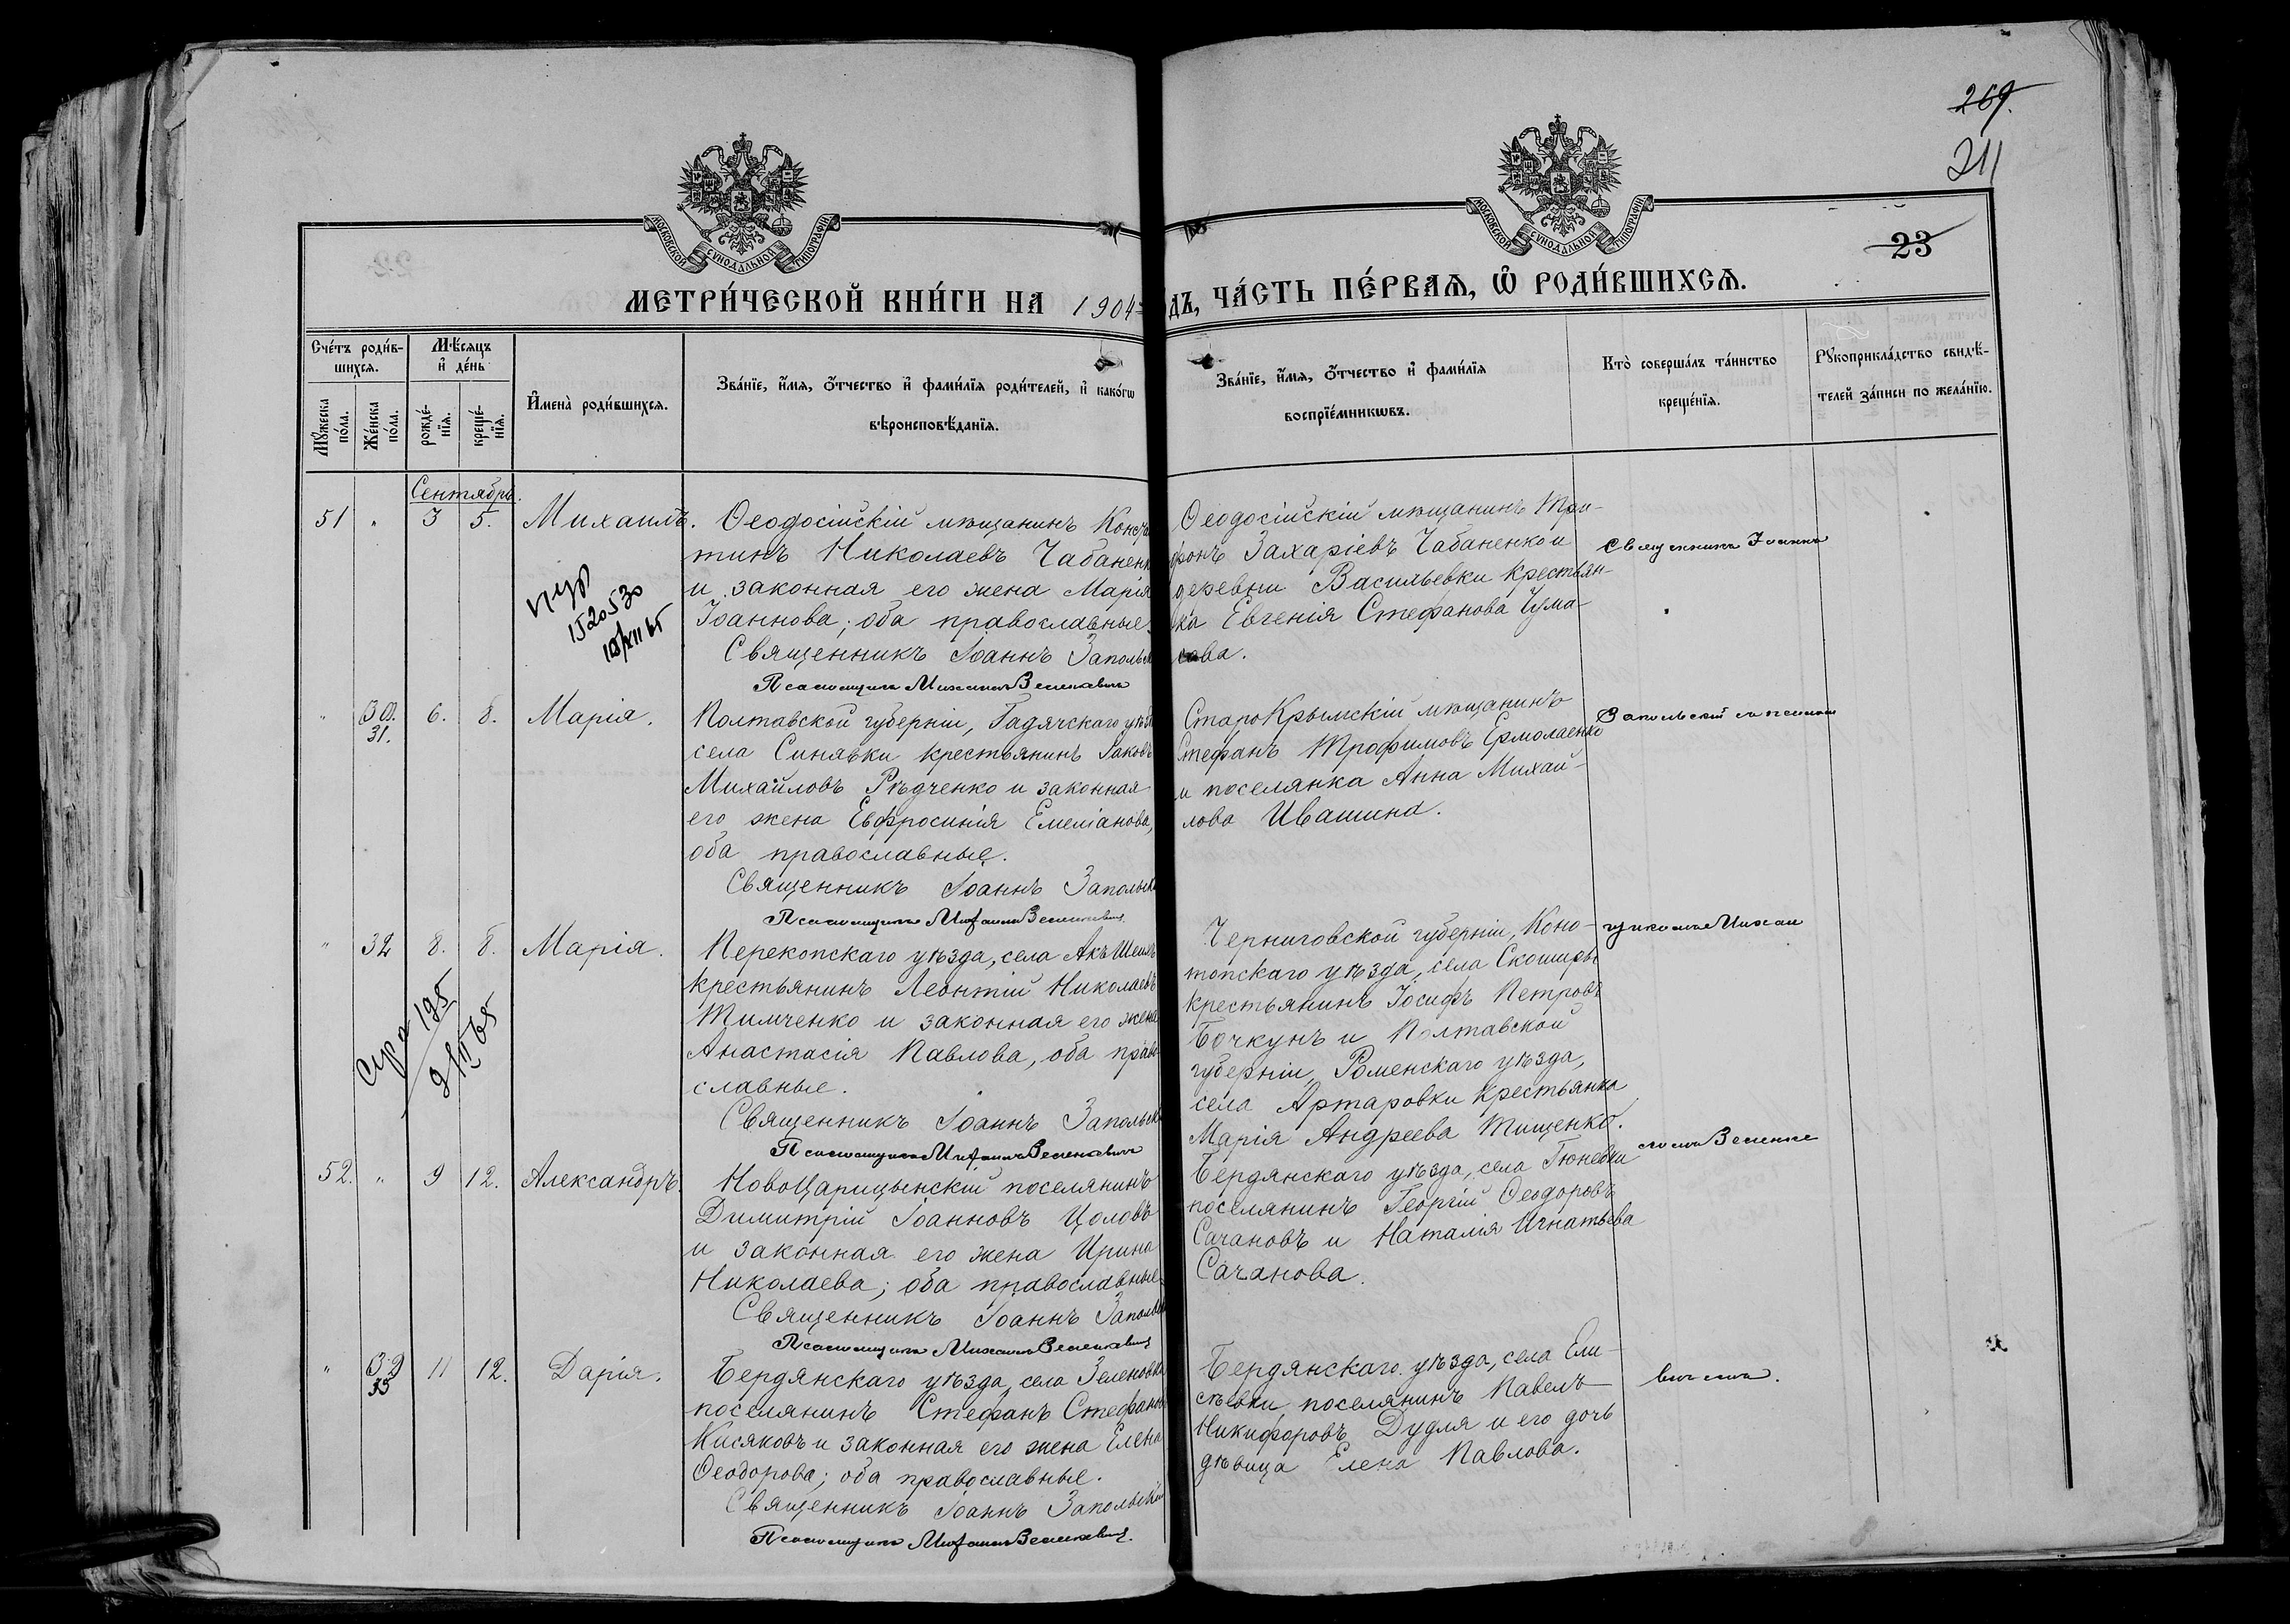 269.
211
23
МОСКОВСКОЙ СѴНОДАЛЬНОЙ ТИПОГРАФІИ
МОСКОВСКОЙ СѴНОДАЛЬНОЙ ТИПОГРАФІИ
МЕТРИ́ЧЕСКОЙ КНИ́ГИ НА 1904
ДЪ, ЧА́СТЬ ПЕ́РВАѦ, Ѽ РОДИ́ВШИХСѦ.
Сче́тъ роди́в-
шихсѧ.
Мꙋ́жеска
по́ла.
Же́нска
по́ла.
Мѣ́сѧцъ
и҆ де́нь
рожде́-
нїѧ.
креще́-
нїѧ.
И҆́мена̀ роди́вшихсѧ.
Зва́нїе, и҆́мѧ, ѻ҆́тчество и҆ фами́лїѧ роди́телей, и҆ како́гѡ
вѣроисповѣ́данїѧ.
Зва́нїе, и҆́мѧ, ѻ҆́тчество и҆ фами́лїѧ
воспрїе́мникѡвъ.
Кто̀ соверша́лъ та́инство
креще́нїѧ.
Рꙋкоприкла́дство свидѣ́-
телей за́писи по жела́нїю.
Сентябрь.
51 " 3 5. Михаилъ.
Ѳеодосійскій мѣщанинъ Конста
тинъ Николаевъ Чабаненк
и законная его жена Марія
Іоаннова; оба православные.
Священникъ Іоаннъ Запольск
Псаломщикъ Михаилъ
Ѳеодосійскій мѣщанинъ Три-
фонъ Захаріевъ Чабаненко и
деревни Васильевки крестьян-
ка Евгенія Стефанова Чума-
кова.
Священникъ Іоаннъ
152053
10/XII 65
" 30. 6. 8. Марія.
31.
Полтавской губерніи, Гадячскаго уѣзд
села Синявки крестьянинъ Іаковъ
Михайловъ Рѣдченко и законная
его жена Евфросинія Емеліанова,
оба православные.
Священникъ Іоаннъ Запольск
Псаломщикъ Михаилъ
СтароКрымскій мѣщанинъ
Стефанъ Трофимовъ Ермолаенко
и поселянка Анна Михай-
лова Ивашина.
Запольскій съ псалом
" 32 8. 8. Марія.
Перекопскаго уѣзда, села Акъ Шеих
крестьянинъ Леонтій Николаевъ
Тимченко и законная его жена
Анастасія Павлова, оба право
славные.
Священникъ Іоаннъ Запольск
Псаломщикъ Михаилъ
Черниговской губерніи, Коно-
топскаго уѣзда, села
крестьянинъ Іосифъ Петровъ
Бочкунъ и Полтавской
губерніи, Роменскаго уѣзда,
села Артаровки крестьянка
Марія Андреева Тищенко.
щикомъ Михаи
195
2/IV 65
52. " 9 12. Александръ.
НовоЦарицынскій поселянинъ
Димитрій Іоанновъ Цоловъ
и законная его жена Ирина
Николаева; оба православные.
Священникъ Іоаннъ Запольск
Псаломщикъ Михаилъ
Бердянскаго уѣзда, села Гюневки
поселянинъ Георгій Ѳеодоровъ
Сачановъ и Наталія Игнатьева
Сачанова.
" 32 11 12. Дарія.
33
Бердянскаго уѣзда, села Зеленовки
поселянинъ Стефанъ Стефанов
Кисяковъ и законная его жена Елена
Ѳеодорова; оба православные.
Священникъ Іоаннъ Запольскій
Псаломщикъ Михаилъ
Бердянскаго уѣзда, села Ели-
сѣевки поселянинъ Павелъ
Никифоровъ Дудля и его дочь
дѣвица Елена Павлова.